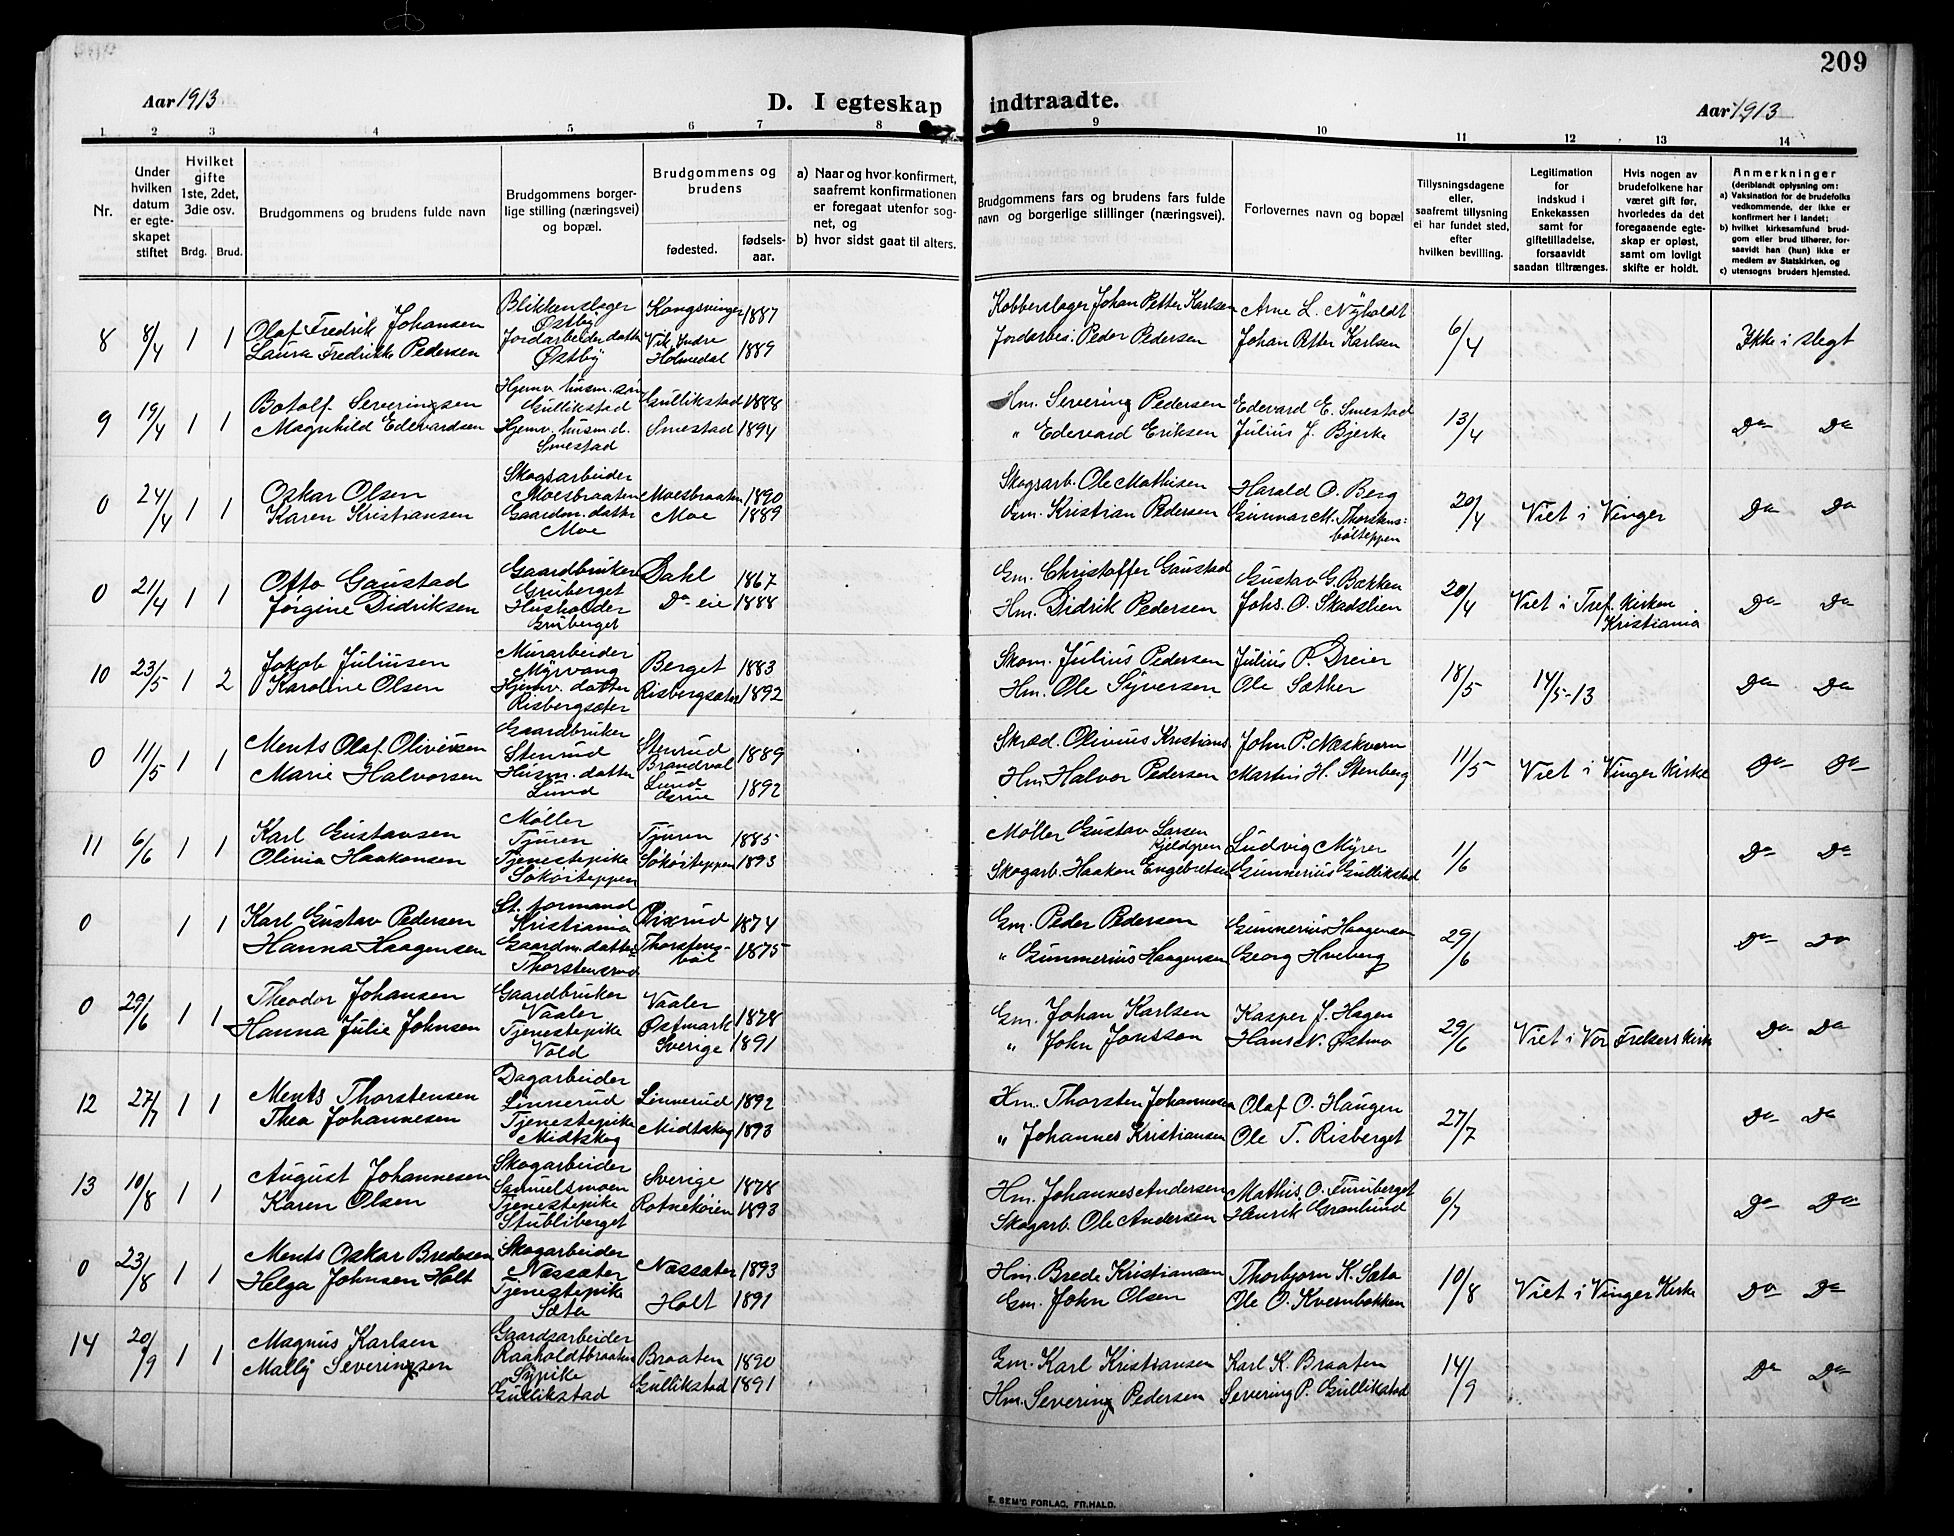 209
Aar 1913
D. I egteskap indtraadte.
Aar 1913
1 2 3 4 5 6 7 8 9 10 11 12 13 14
Nr.
Under hvilken datum er egteskapet stiftet
Hvilket gifte 1ste, 2det, 3die osv.
Brdg. Brud.
Brudgommens og brudens fulde navn
Brudgommens borgerlige stilling (næringsvei) og bopæl.
Brudgommens og brudens
fødested.
fødselsaar.
a) Naar og hvor konfirmert, saafremt konfirmationen er foregaat utenfor sognet, og
b) hvor sidst gaat til alters.
Brudgommens fars og brudens fars fulde navn og borgerlige stillinger (næringsvei).
Forlovernes navn og bopæl
Tillysningsdagene eller, saafremt tillysning ei har fundet sted, efter hvilken bevilling.
Legitimation for indskud i Enkekassen samt for giftetilladelse, forsaavidt saadan tiltrænges.
Hvis nogen av brudefolkene har været gift før, hvorledes da det foregaaende egteskap er opløst, samt om lovligt skifte er holdt.
Anmerkninger
(deriblandt oplysning om:
a) Vaksination for de brudefolks vedkommende, der ikke er konfirmert her i landet;
b) hvilket kirkesamfund brudgom eller brud tilhører, forsaavidt han (hun) ikke er medlem av Statskirken, og
c) utensogns bruders hjemsted.
8 8/4 1 1 Olaf Fredrik Johansen Blikkenslager Østby Kongsvinger 1887 Kobberslager Johan Petter Karlsen Arne L. Nyholdt 6/4 Ikke i slegt
Laura Fredrikke Pedersen Jordarbeider datter Østby Vik, Indre Holmedal 1889 Jordarbei. Peder Pedersen Johan Petter Karlsen
9 19/4 1 1 Botolf Severinsen Hjemv. husm. søn Gullikstad Gullikstad 1888 Hm. Severin Pedersen Edevard E. Smestad 13/4 Do Do
Magnhild Edevardsen Hjemv. husm. d. Smestad Smestad 1894 " Edevard Eriksen Julius J. Bjerke
0 24/4 1 1 Oskar Olsen Skogsarbeider Moesbraaten Moesbraaten 1890 Skogsarb. Ole Mathisen Harald O. Berg 20/4 Viet i Vinger Do Do
Karen Kristiansen Gaardm. datter Moe Moe 1889 Gm. Kristian Pedersen Gunnar M. Thorstensbølteppen
0 21/4 1 1 Otto Gaustad Gaardbruker Gruberget Dahl 1867 Gm. Christoffer Gaustad Gustav G. Bakken 20/4 Viet i Tref. Kirken Kristiania Do Do
Jørgine Didriksen Husholder Gruberget Do eie 1888 Hm. Didrik Pedersen Johs. O. Skadslien
10 23/5 1 2 Jakob Juliusen Murarbeider Myrvang Berget 1883 Skom. Julius Pedersen Julius P. Dreier 18/5 14/5-13 Do Do
Karoline Olsen Hjemv. datter Risbergsæter Risbergsæter 1892 Hm. Ole Syversen Ole Sæther
0 11/5 1 1 Ments Olaf Oliversen Gaardbruker Stenrud Stenrud Brandval 1889 Skræd. Olivius Kristians John P. Næskvern 11/5 Viet i Vinger Kirke Do Do
Marie Halvorsen Husm. datter Lund Lund Grue 1892 Hm. Halvor Pedersen Martin H. Stenberg
11 6/6 1 1 Karl Gustavsen Møller Tjuren Tjuren 1885 Møller Gustav Larsen Kjeldgren Ludvig Myrer 1/6 Do Do
Olivia Haakonsen Tjenestepike Søkøiteppen Søkøiteppen 1893 Skogarb. Haakon Engebretsen Gunnerius Gullikstad
0 1 1 Karl Gustav Pedersen St. formand Kristiania 1874 Gm. Peder Pedersen Gunnerius Haagensen 29/6 Do Do
Hanna Haagensen Gaardm. datter Thorstensbøl 1875 " Gunnerius Haagensen Georg Hveberg
0 29/6 1 1 Theodor Johansen Gaardbruker Vaaler Vaaler 1878 Gm. Johan Karlsen Kasper J. Hagen 29/6 Viet i Vor Frelsers Kirke Do Do
Hanna Julie Johnsen Tjenestepike Vold Østmark Sverige 1891 " John Jonsson Hans N. Østmo
12 27/7 1 1 Ments Thorstensen Dagarbeider Linnerud Linnerud 1892 Hm. Thorsten Johannesen Olaf O. Haugen 27/7 Do Do
Thea Johannesen Tjenestepike Midtskog Midtskog 1893 " Johannes Kristiansen Ole T. Risberget
13 10/8 1 1 August Johannesen Skogarbeider Samuelsmoen Sverige 1878 Hm. Johannes Andersen Mathis O. Furuberget 6/7 Do Do
Karen Olsen Tjenestepike Stubliberget Rotnekøien 1893 Skogarb. Ole Andersen Henrik Granlund
0 23/8 1 1 Ments Oskar Bredesen Skogarbeider Næssæter Næssæter 1893 Hm. Brede Kristiansen Thorbjørn K. Sæta 10/8 Viet i Vinger Kirke Do Do
Helga Johnsen Holt Tjenestepike Sæta Holt 1891 Gm. John Olsen Ole O. Kvernbakken
14 20/9 1 1 Magnus Karlsen Gaardsarbeider Raaholdtbraaten Braaten 1890 Gm. Karl Kristiansen Karl K. Braaten 14/9 Do Do
Mally Severinsen Sypike Gullikstad Gullikstad 1891 Hm. Severin Pedersen Severin P. Gullikstad
E. SEM'S FORLAG, FR.HALD.